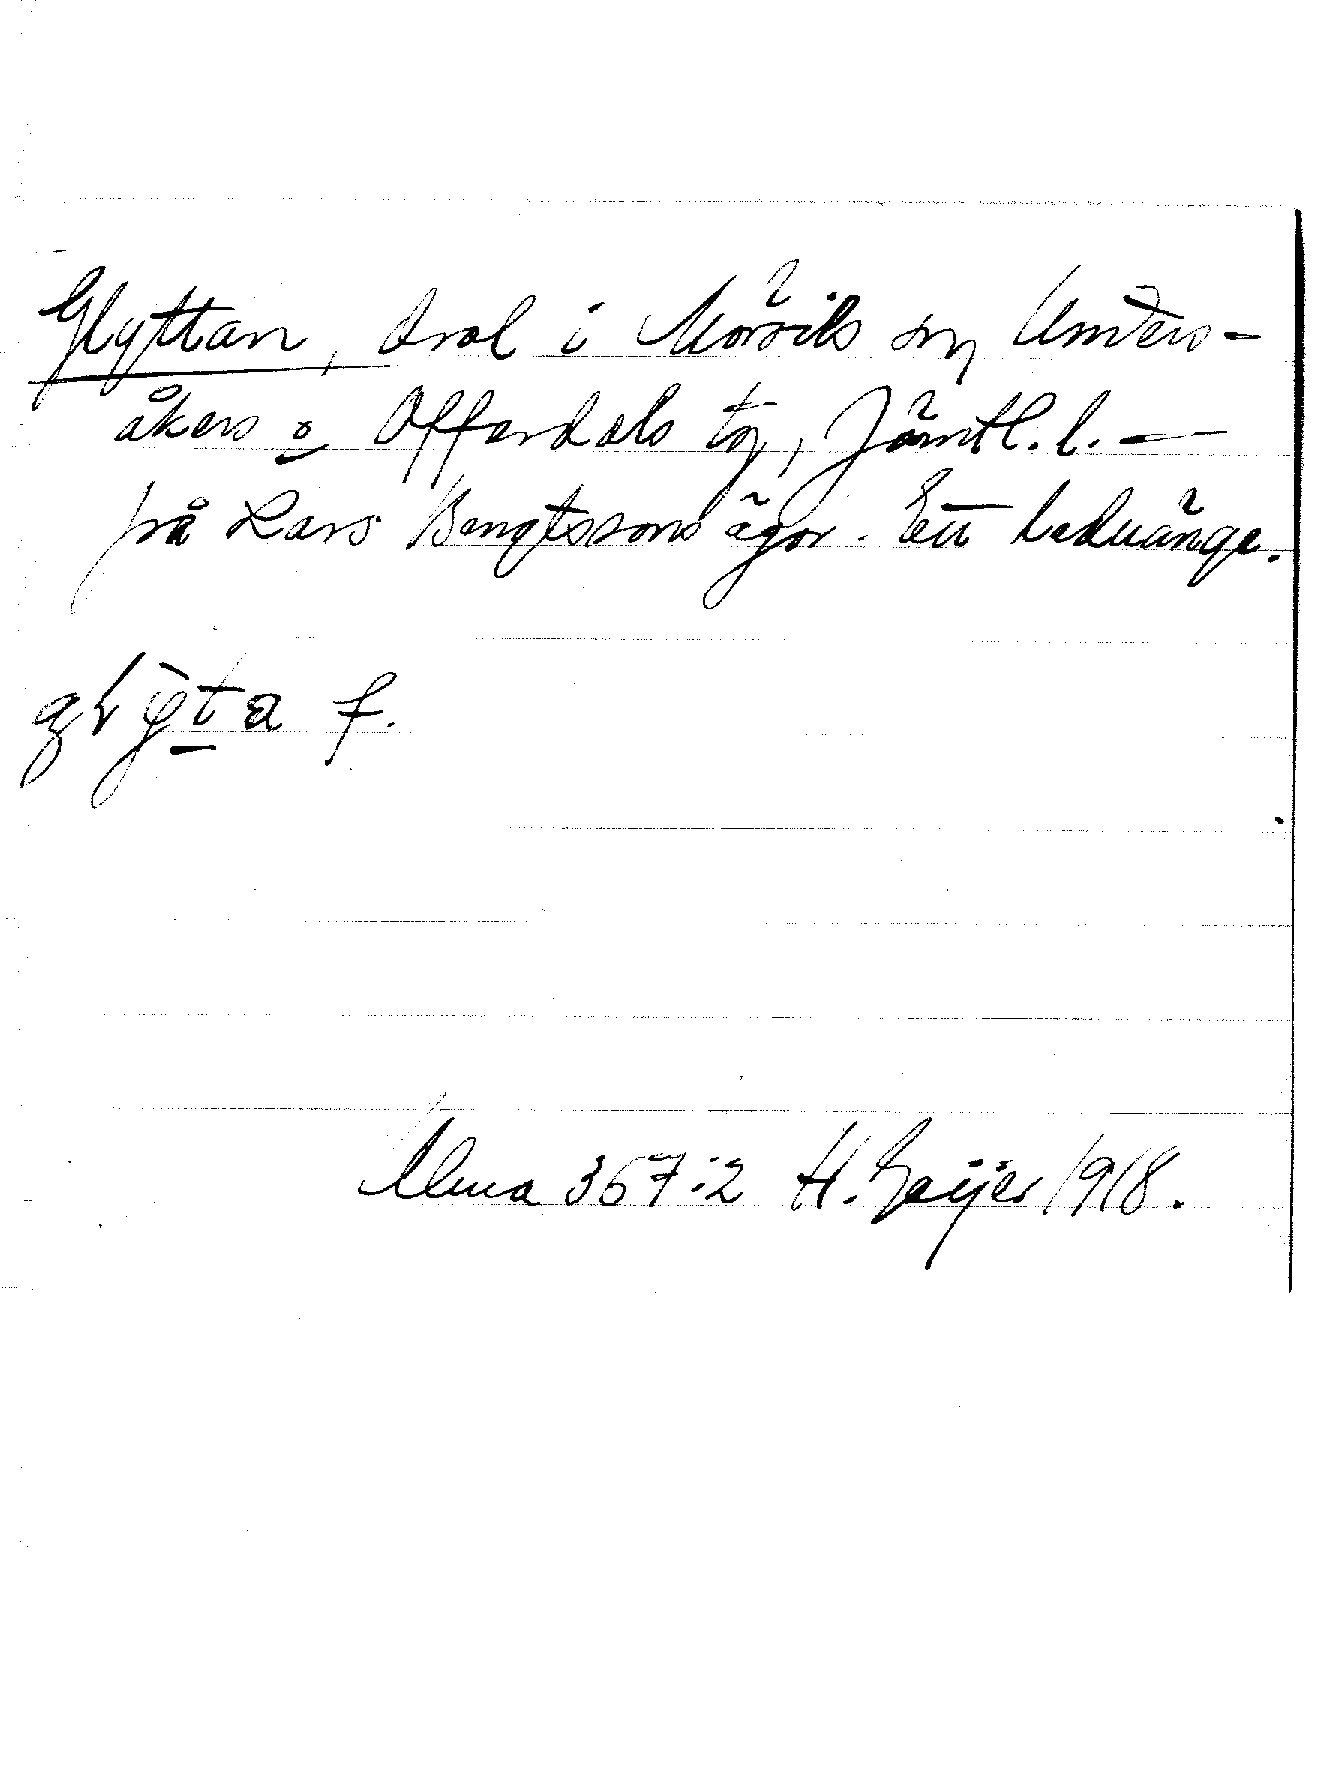 Glyttan, äral i Mörsils sn, Unders-
åkers o Offerdals tg, Jämtl. l. —
på Lars Bengtssons ägor. Ett
glỳta f.
Alma 367:2 H. Geijer 1918.